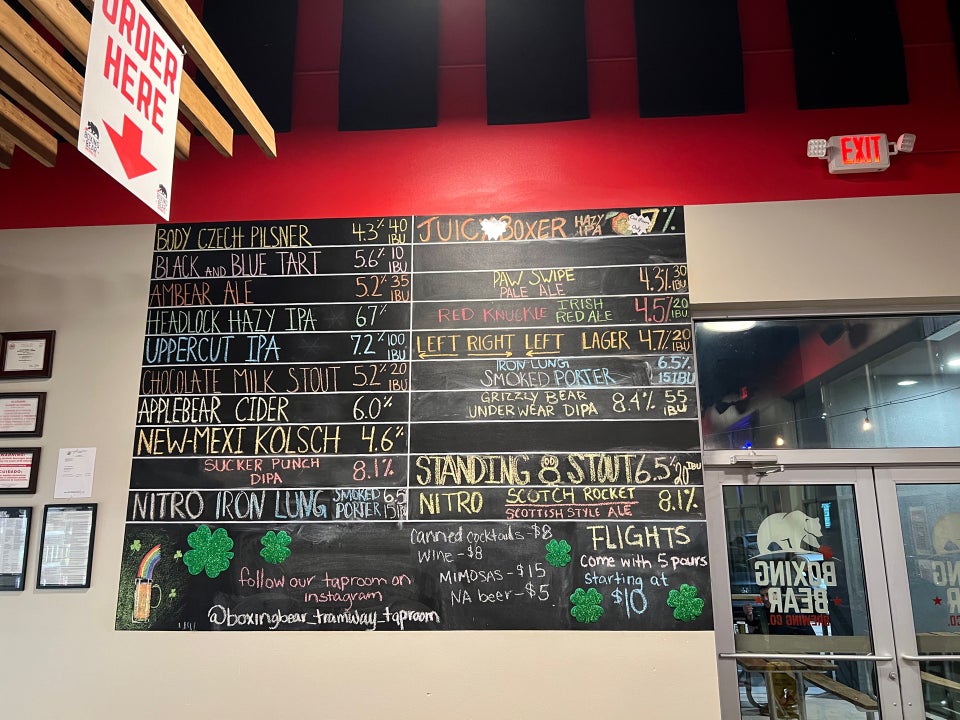 ORDER
HERE
EXIT
BODY CZECH PILSNER 4.3% 40 IBU
BLACK AND BLUE TART 5.6% 10 IBU
AMBEAR ALE 5.2% 35 IBU
HEADLOCK HAZY IPA 6.7%
UPPERCUT IPA 7.2% 100 IBU
CHOCOLATE MILK STOUT 5.2% 20 IBU
APPLEBEAR CIDER 6.0%
NEW-MEXI KOLSCH 4.6%
SUCKER PUNCH
DIPA 8.1%
NITRO IRON LUNG SMOKED PORTER 6.5 15 IBU
JUICY BOXER HAZY IPA 7%
PAW SWIPE
PALE ALE 4.3% 30 IBU
RED KNUCKLE IRISH RED ALE 4.5% 20 IBU
LEFT RIGHT LEFT LAGER 4.7% 20 IBU
IRON LUNG 6.5%
SMOKED PORTER 15 IBU
GRIZZLY BEAR
UNDERWEAR DIPA 8.4% 55 IBU
STANDING 8 STOUT 6.5% 20 IBU
NITRO SCOTCH ROCKET 8.1%
SCOTTISH STYLE ALE
follow our taproom on
instagram
@boxingbear_tramway_taproom
canned cocktails - $8
wine - $8
MIMOSAS - $15
NA beer - $5
FLIGHTS
come with 5 pours
starting at
$10
BOXING
BEAR
BREWING CO.